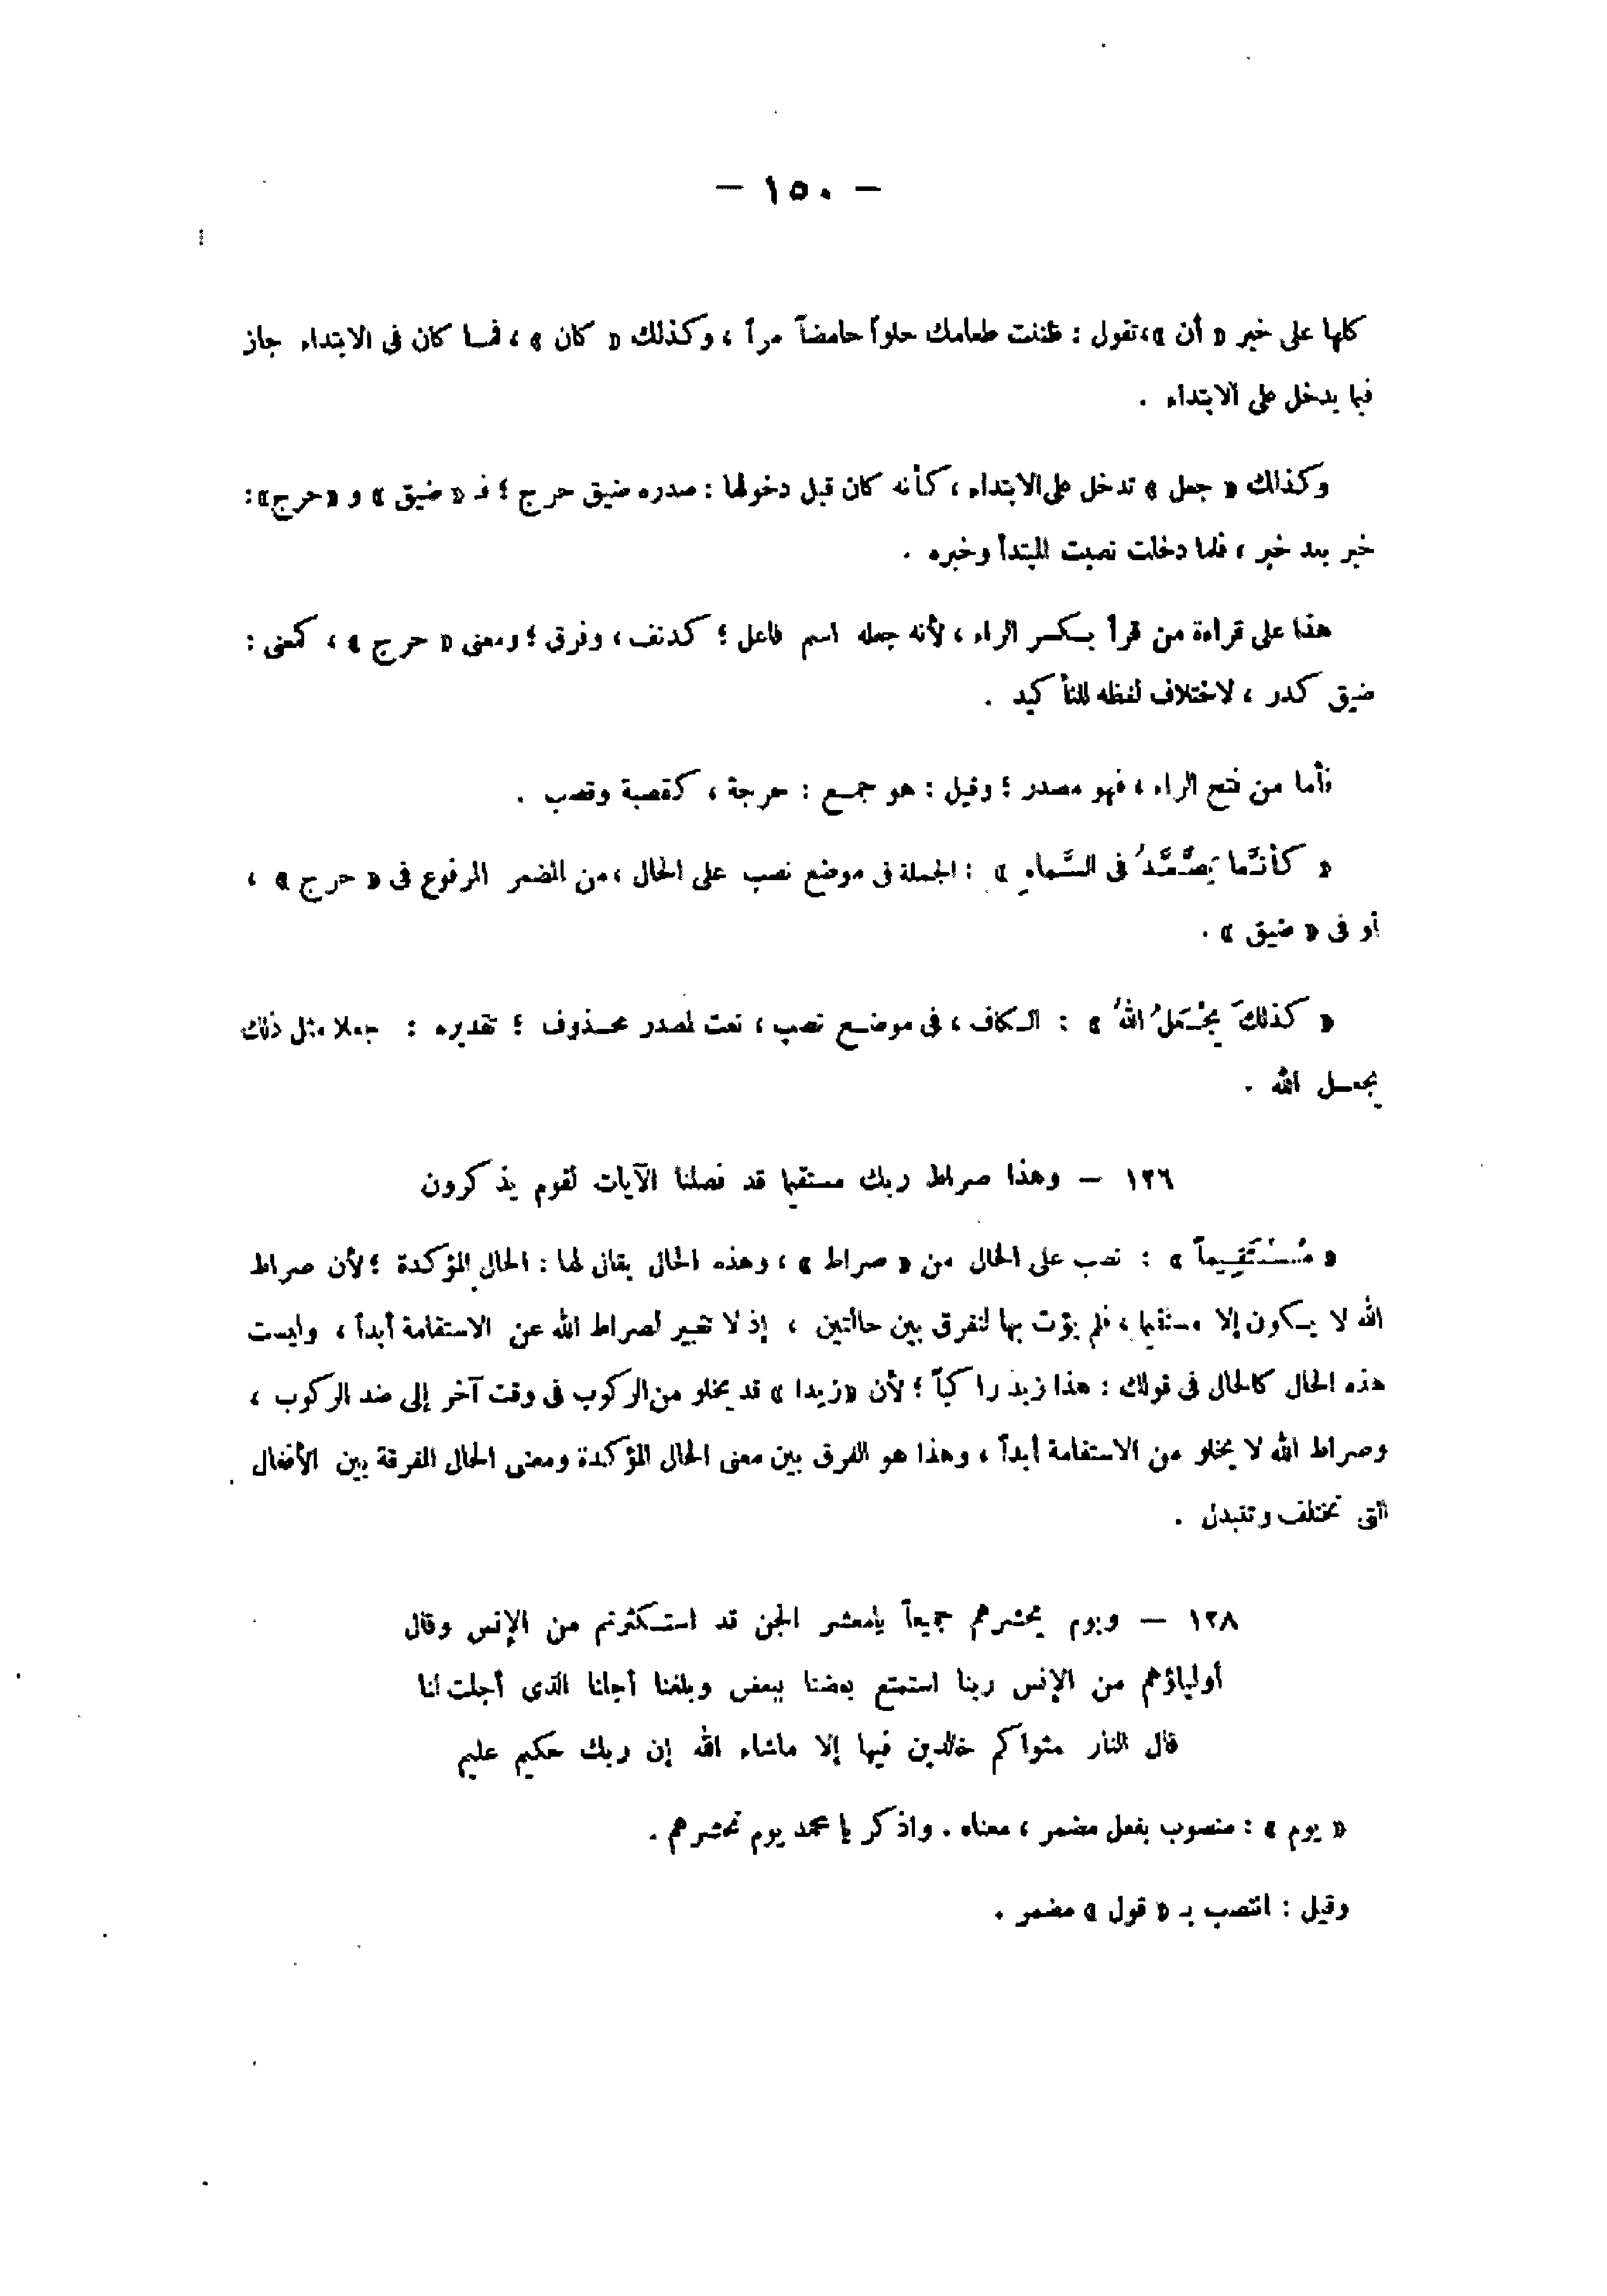 — ١٥٠ —
كلها على خبر « أن »، تقول : ظننت طعامك حلواً حامضاً مراً ، وكذلك « كان » ، فما كان فى الابتداء جاز
فيما يدخل على الابتداء .
وكذلك « جعل » تدخل على الابتداء ، كأنه كان قبل دخولها : صدره ضيق حرج ؛ فـ « ضيق » و «حرج»:
خبر بعد خبر ، فلما دخلت نصبت المبتدأ وخبره .
هذا على قراءة من قرأ بكسر الراء ، لأنه جعله اسم فاعل ؛ كدنف ، وفرق ؛ ومعنى « حرج » ، كمعنى :
ضيق كدر ، لاختلاف لفظه للتأكيد .
فأما من فتح الراء ، فهو مصدر ؛ وقيل : هو جمع : حرجة ، كقصبة وقصب .
« كأنَّما يَصَّعَّدُ فى السَّماءِ » : الجملة فى موضع نصب على الحال ، من المضمر المرفوع فى « حرج » ،
أو فى « ضيق » .
« كذلكَ يجْعَلُ اللهُ » : الكاف ، فى موضع نصب ، نعت لمصدر محذوف ؛ تقديره : جعلا مثل ذلك
يجعل الله .
١٢٦ — وهذا صراط ربك مستقيما قد فصلنا الآيات لقوم يذكرون
« مُسْتَقِيماً » : نصب على الحال من « صراط » ، وهذه الحال يقال لها : الحال المؤكدة ؛ لأن صراط
الله لا يكون إلا مستقيما ، فلم يؤت بها لتفرق بين حالتين ، إذ لا تغيير لصراط الله عن الاستقامة أبداً ، وليست
هذه الحال كالحال فى قولك : هذا زيد راكباً ؛ لأن «زيدا» قد يخلو من الركوب فى وقت آخر إلى ضد الركوب ،
وصراط الله لا يخلو من الاستقامة أبداً ، وهذا هو الفرق بين معنى الحال المؤكدة ومعنى الحال المفرقة بين الأفعال
التى تختلف وتتبدل .
١٢٨ — ويوم يحشرهم جميعاً يامعشر الجن قد استكثرتم من الإنس وقال
أولياؤهم من الإنس ربنا استمتع بعضنا ببعض وبلغنا أجلنا الذى أجلت لنا
قال النار مثواكم خالدين فيها إلا ماشاء الله إن ربك حكيم عليم
« يوم » : منصوب بفعل مضمر ، معناه . واذكر يا محمد يوم نحشرهم .
وقيل : انتصب بـ « قول » مضمر .